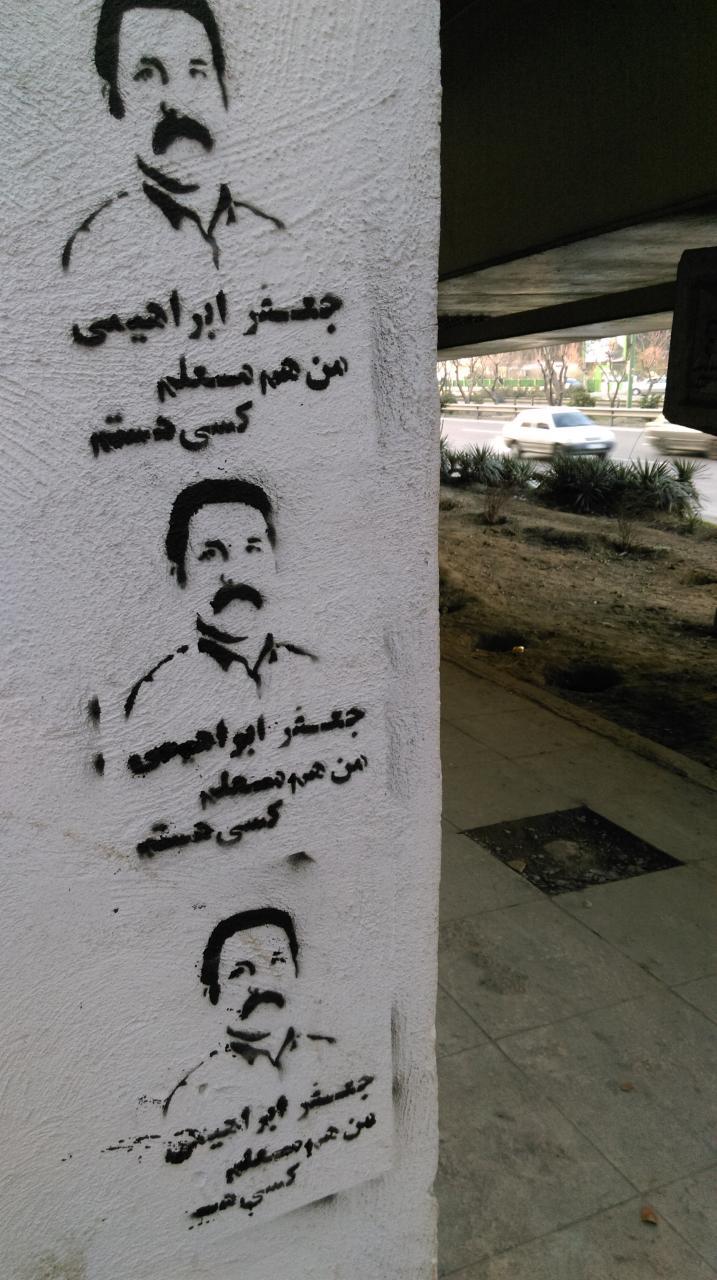 جعفر ابراهیمی
من هم معلم
کسی هستم
جعفر ابراهیمی
من هم معلم
کسی هستم
جعفر ابراهیمی
من هم معلم
کسی هستم